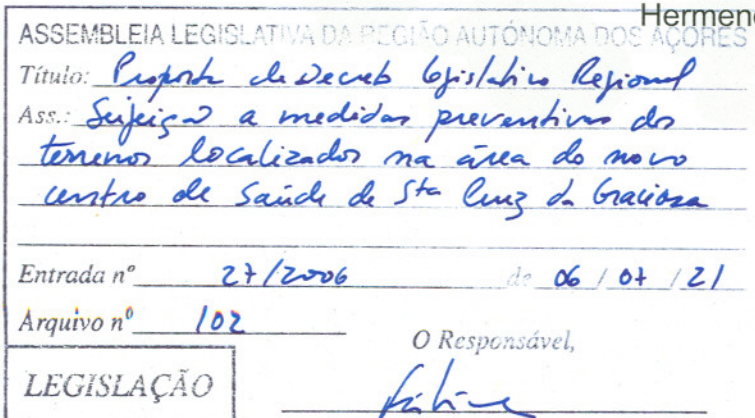 Hermene
ASSEMBLEIA LEGISLATIVA DA REGIÃO AUTÓNOMA DOS AÇORES
Título: Proposta de Decreto legislativo Regional
Ass.: Sujeição a medidas preventivas dos
terrenos localizados na área do novo
centro de Saúde de Sta Cruz da Graciosa
Entrada nº 27/2006 de 06 / 07 / 21
Arquivo nº 102
O Responsável,
LEGISLAÇÃO